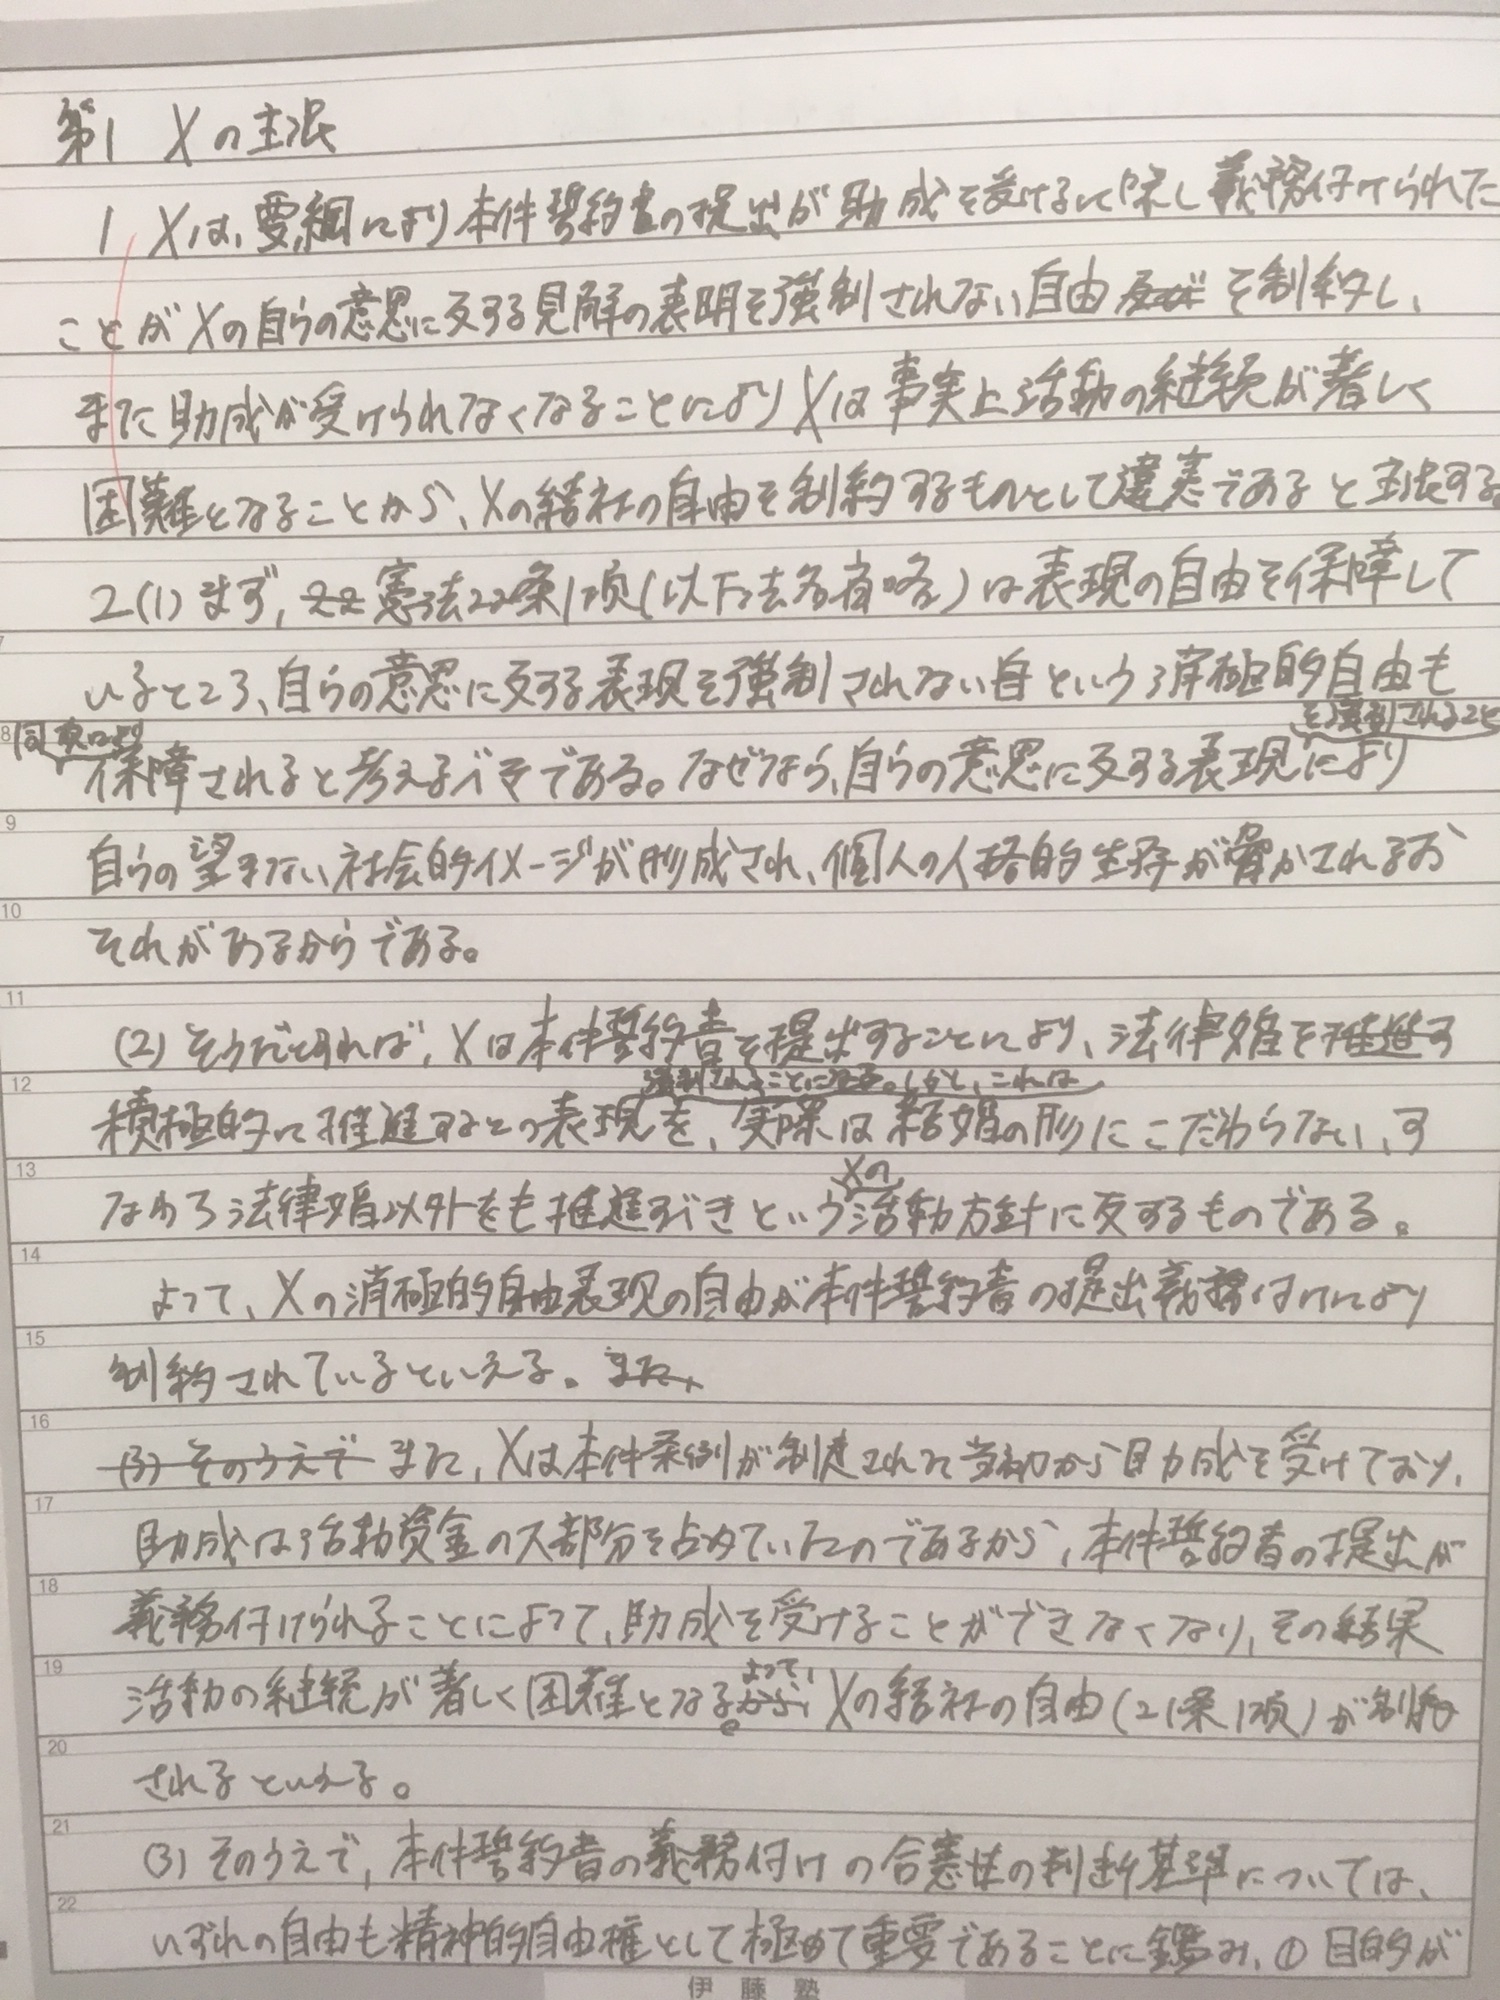 第1 Xの主張
1 Xは、要綱により本件誓約書の提出が助成を受けるに際し義務付けられた
ことがXの自らの意思に反する見解の表明を強制されない自由を制約し、
また助成が受けられなくなることによりXは事実上活動の継続が著しく
困難となることから、Xの結社の自由を制約するものとして違憲であると主張する。
2(1) まず、憲法22条1項(以下法名省略)は表現の自由を保障して
いるところ、自らの意思に反する表現を強制されない自という消極的自由も
を強制されること
同項により
保障されると考えるべきである。なぜなら、自らの意思に反する表現により
9
自らの望まない社会的イメージが形成され、個人の人格的生存が脅かされるお
10
それがあるからである。
11
(2) そうだとすれば、Xは本件誓約書を提出することにより、法律婚を推進す
12
強制されることになる。しかし、これは
積極的に推進するとの表現を、実際は結婚の形にこだわらない、す
13
Xの
なわち法律婚以外をも推進すべきという活動方針に反するものである。
14
よって、Xの消極的自由表現の自由が本件誓約書の提出義務付けにより
15
制約されているといえる。また、
16
(3) そのうえで また、Xは本件条例が制定された当初から助成を受けており、
17
助成は活動資金の大部分を占めていたのであるから、本件誓約書の提出が
18
義務付けられることによって、助成を受けることができなくなり、その結果
19
よって、
活動の継続が著しく困難となる。から、Xの結社の自由(21条1項)が制約
20
されるといえる。
21
(3) そのうえで、本件誓約書の義務付けの合憲性の判断基準については、
22
いずれの自由も精神的自由権として極めて重要であることに鑑み、① 目的が
伊藤塾